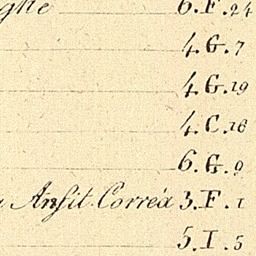 ghe 6.F.24
4.G.7
4.G.19
4.C.18
6.G.9
Ansit. Corréa 3.F.1
5.I.5